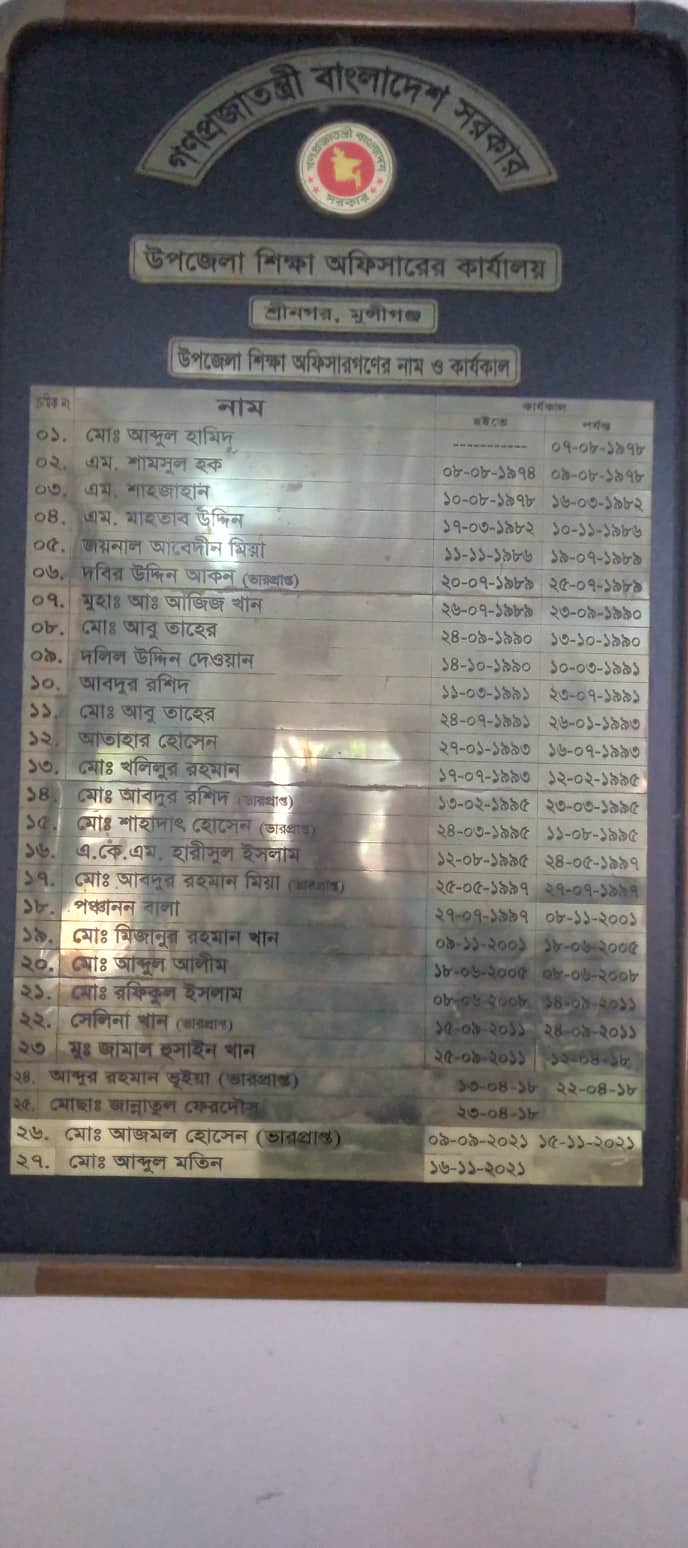 গণপ্রজাতন্ত্রী বাংলাদেশ সরকার
গণপ্রজাতন্ত্রী বাংলাদেশ
সরকার
উপজেলা শিক্ষা অফিসারের কার্যালয়
শ্রীনগর, মুন্সীগঞ্জ
উপজেলা শিক্ষা অফিসারগণের নাম ও কার্যকাল
ক্রমিক নং নাম কার্যকাল
হইতে পর্যন্ত
০১. মোঃ আব্দুল হামিদ ----------- ০৭-০৮-১৯৭৮
০২. এম. শামসুল হক ০৮-০৮-১৯৭৪ ০৯-০৮-১৯৭৮
০৩. এম. শাহজাহান ১০-০৮-১৯৭৮ ১৬-০৩-১৯৮২
০৪. এম. মাহতাব উদ্দিন ১৭-০৩-১৯৮২ ১০-১১-১৯৮৬
০৫. জয়নাল আবেদীন মিয়া ১১-১১-১৯৮৬ ১৯-০৭-১৯৮৯
০৬. দবির উদ্দিন আকন (ভারপ্রাপ্ত) ২০-০৭-১৯৮৯ ২৫-০৭-১৯৮৯
০৭. মুহাঃ আঃ আজিজ খান ২৬-০৭-১৯৮৯ ২৩-০৯-১৯৯০
০৮. মোঃ আবু তাহের ২৪-০৯-১৯৯০ ১৩-১০-১৯৯০
০৯. দলিল উদ্দিন দেওয়ান ১৪-১০-১৯৯০ ১০-০৩-১৯৯১
১০. আবদুর রশিদ ১১-০৩-১৯৯১ ২৩-০৭-১৯৯১
১১. মোঃ আবু তাহের ২৪-০৭-১৯৯১ ২৬-০১-১৯৯৩
১২. আতাহার হোসেন ২৭-০১-১৯৯৩ ১৬-০৭-১৯৯৩
১৩. মোঃ খলিলুর রহমান ১৭-০৭-১৯৯৩ ১২-০২-১৯৯৫
১৪. মোঃ আবদুর রশিদ (ভারপ্রাপ্ত) ১৩-০২-১৯৯৫ ২৩-০৩-১৯৯৫
১৫. মোঃ শাহাদাৎ হোসেন (ভারপ্রাপ্ত) ২৪-০৩-১৯৯৫ ১১-০৮-১৯৯৫
১৬. এ.কে.এম. হারীসুল ইসলাম ১২-০৮-১৯৯৫ ২৪-০৫-১৯৯৭
১৭. মোঃ আবদুর রহমান মিয়া (ভারপ্রাপ্ত) ২৫-০৫-১৯৯৭ ২৭-০৭-১৯৯৭
১৮. পঞ্চানন বালা ২৭-০৭-১৯৯৭ ০৮-১১-২০০১
১৯. মোঃ মিজানুর রহমান খান ০৯-১১-২০০১ ১৮-০৬-২০০৫
২০. মোঃ আব্দুল আলীম ১৮-০৬-২০০৫ ০৮-০৬-২০০৮
২১. মোঃ রফিকুল ইসলাম ০৮-০৬-২০০৮ ১৪-০৯-২০১১
২২. সেলিনা খান (ভারপ্রাপ্ত) ১৫-০৯-২০১১ ২৪-০৯-২০১১
২৩ মুঃ জামাল হুসাইন খান ২৫-০৯-২০১১ ১২-০৪-১৮
২৪. আব্দুর রহমান ভূইয়া (ভারপ্রাপ্ত) ১৩-০৪-১৮ ২২-০৪-১৮
২৫. মোছাঃ জান্নাতুল ফেরদৌস ২৩-০৪-১৮
২৬. মোঃ আজমল হোসেন (ভারপ্রাপ্ত) ০৯-০৯-২০২১ ১৫-১১-২০২১
২৭. মোঃ আব্দুল মতিন ১৬-১১-২০২১